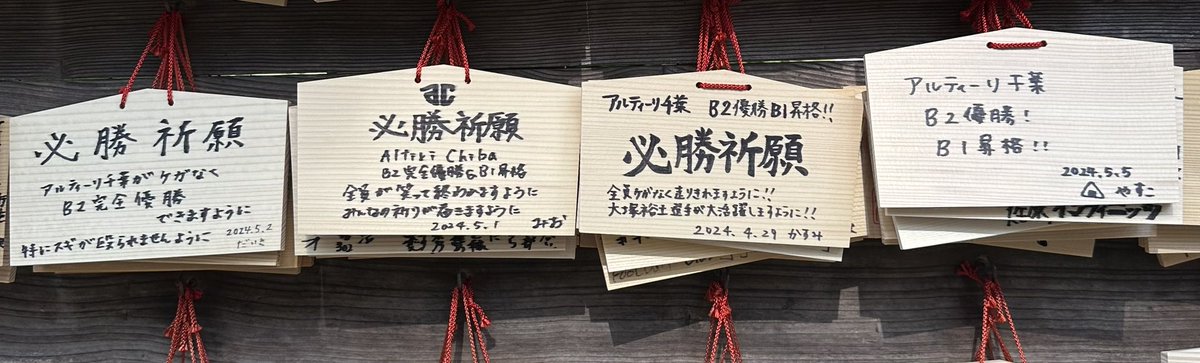 必勝祈願
アルティーリ千葉がケガなく
B2完全優勝
できますように
特にスギが段られませんように
2024.5.2
だいき
ac
必勝祈願
Altiri Chiba
B2完全優勝&B1昇格
全員が笑って終われますように
みんなの祈りが届きますように
2024.5.1
みお
アルティーリ千葉 B2優勝B1昇格!!
必勝祈願
全員ケガなく走りきれますように!!
大塚裕土選手が大活躍しますように!!
2024.4.29 かすみ
アルティーリ千葉
B2優勝!
B1昇格!!
2024.5.5
やすこ